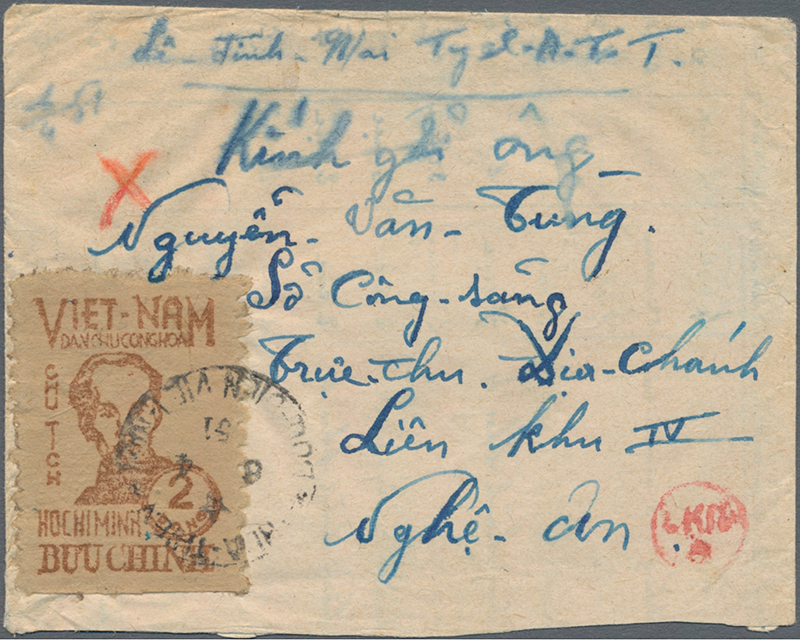 Lê - Tinh - Mai Ty
4/4 51
Kính gửi ông
Nguyễn - Văn - Tùng.
Sở Công - sảng
Trực - thu. Địa - Chánh
Liên khu IV
Nghệ - an
VIET-NAM
DAN CHU CONG HOA
CHU TCH
2
HOCHIMINH
BUU CHINH
51
8 4